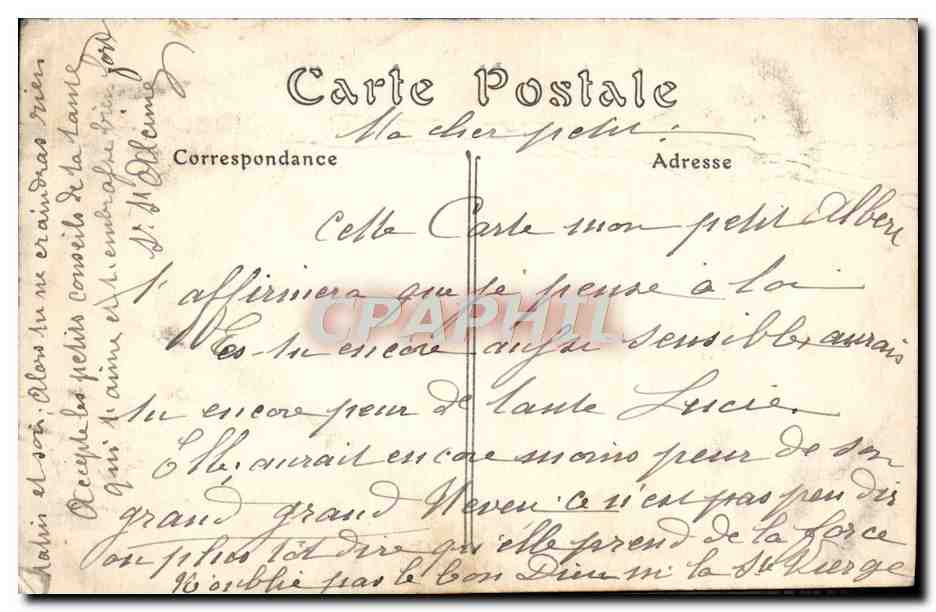 Carte Postale
Ma cher petit.
Correspondance
Adresse
Cette Carte mon petit Albert
t'affirmera que je pense à toi
Es-tu encore aussi sensible, aurais
tu encore peur de tante Lucie.
Elle, aurait encore moins peur de son
grand grand Neveu ce n'est pas peu dir
ou plus tôt dire qu'elle prend de la force
N'oublie pas le bon Dieu ni la Ste Vierge
matin et soir; Alors tu ne craindras rien
Accepte les petits conseils de ta tante
qui t'aime et t'embrasse bien fort
Sr. St Alcime
CPAPHIL